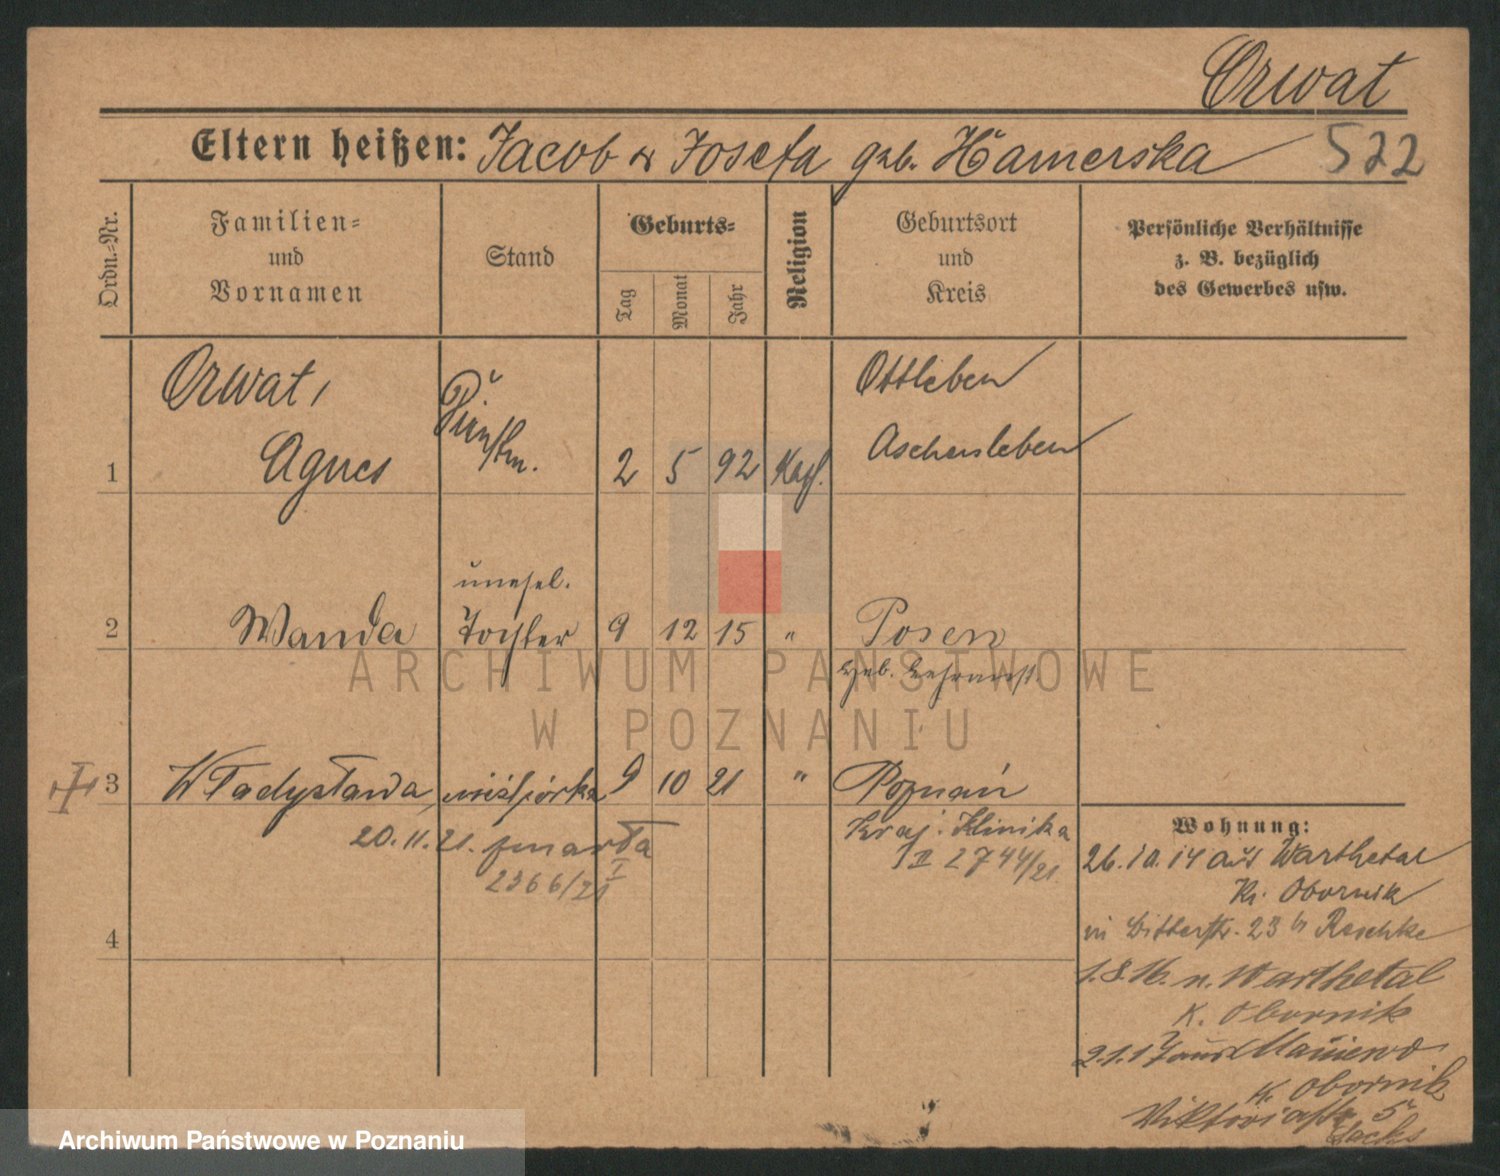 Orwat
Eltern heißen: Jacob & Josefa geb. Hamerska
522
Ordn.-Nr.
Familien- und Vornamen
Stand
Geburts-
Tag
Monat
Jahr
Religion
Geburtsort und Kreis
Persönliche Verhältnisse z. B. bezüglich des Gewerbes usw.
Orwat,
Ottleben
Aschersleben
1 Agnes 2 5 92 Kath.
unehel.
2 Wanda Tochter 9 12 15 " Posen
3 Władysława 9 10 21 " Poznań
20.11.21. zmarła
2366/21 I
Kraj. Klinika
II 2744/21.
4
Wohnung:
26.10.14 aus Warthetal
Kr. Obornik
in Bitterstr. 23 b Reschke
1.8.16. n. Warthetal
K. Obornik
2.1.17 aus
K. Obornik
Viktoriastr. 5
Sachs
ARCHIWUM PAŃSTWOWE
W POZNANIU
Archiwum Państwowe w Poznaniu